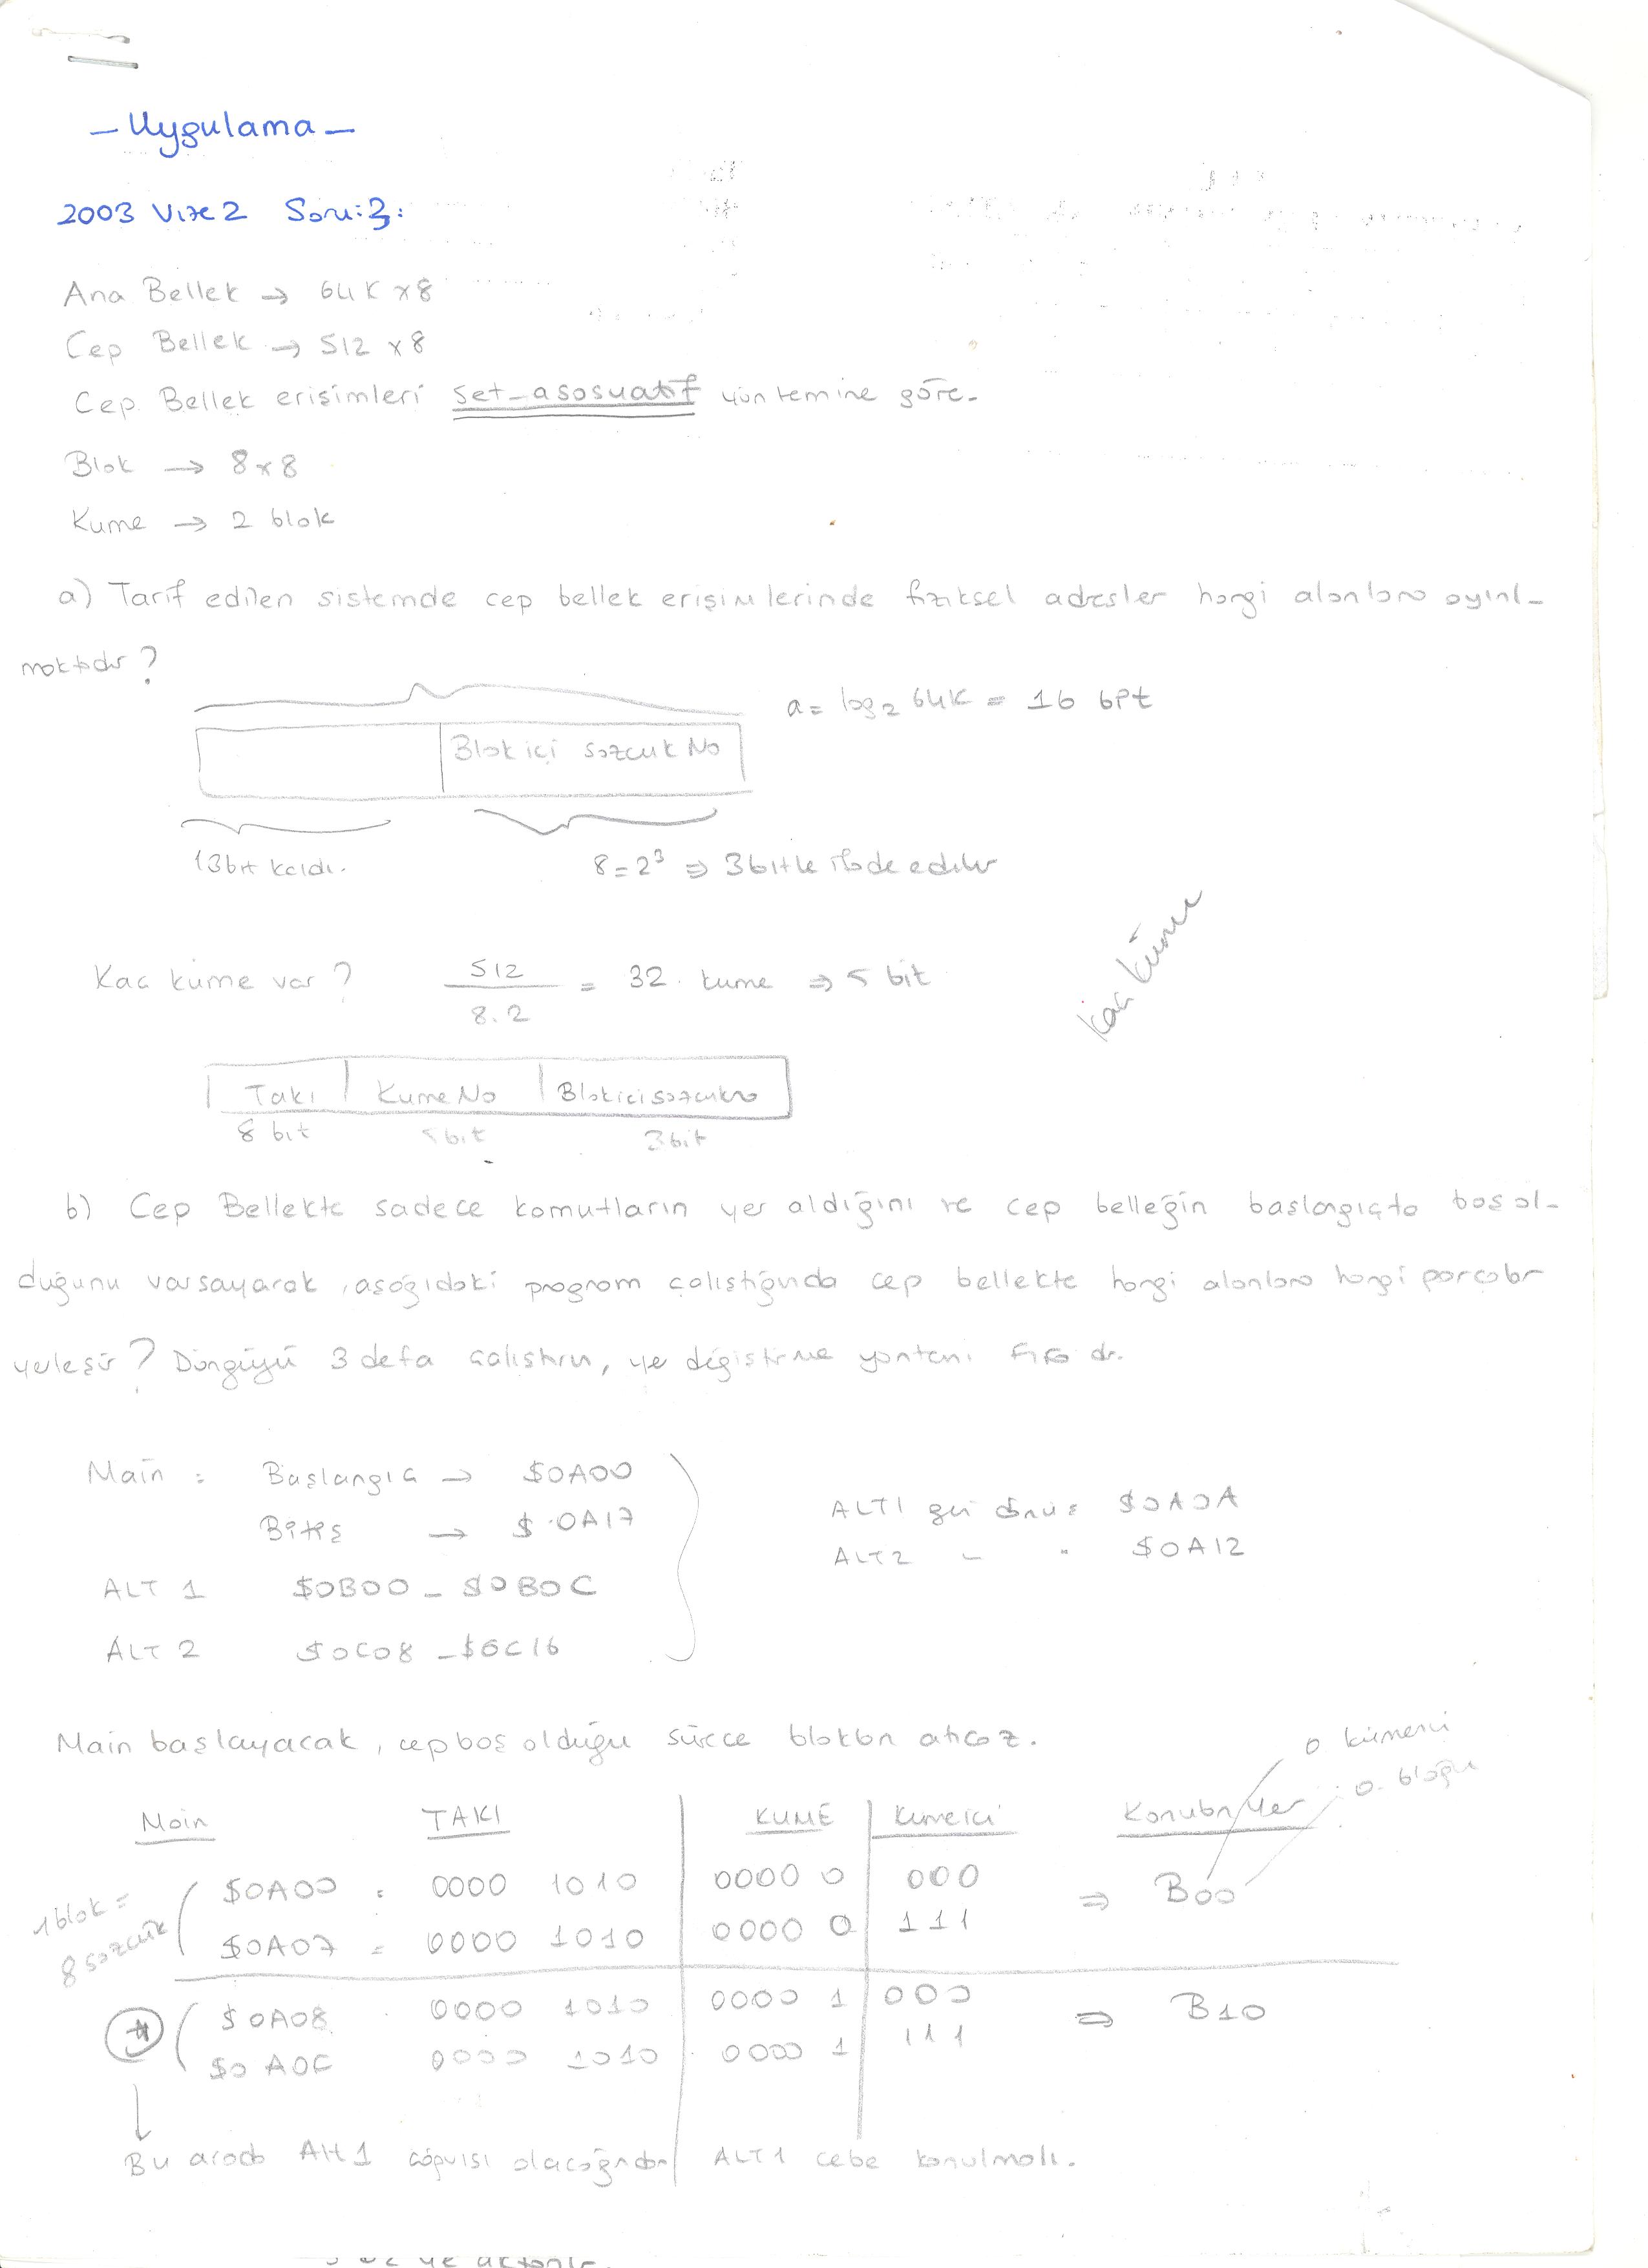 - Uygulama -
2003 Vize 2 Soru:3:
Ana Bellek → 64K x8
Cep Bellek → 512 x8
Cep Bellek erişimleri set-asosuatif yöntemine göre.
Blok → 8x8
Kume → 2 blok
a) Tarif edilen sistemde cep bellek erişimlerinde fiziksel adresler hangi alanlara ayrıl-
maktadır?
a = log₂ 64K = 16 bit
Blok içi sozcuk No
13bit kaldı. 8=2³ ⇒ 3bitle ifade edilir
Kaç küme var? 512 / 8.2 = 32 kume ⇒ 5 bit
Kaç Küme
Takı Kume No Blokici sozcukno
8 bit 5bit 3bit
b) Cep Bellekte sadece komutların yer aldığını ve cep belleğin başlangıçta boş ol-
duğunu varsayarak, aşağıdaki program çalıştığında cep bellekte hangi alanlara hangi parçalar
yerleşir? Döngüyü 3 defa çalıştırın, ye değiştirme yöntemi FIFO dır.
Main : Başlangıç → $0A00
Bitiş → $0A17
ALT1 geri dönüş $0A0A
ALT2 " " $0A12
ALT 1 $0B00 - $0B0C
ALT 2 $0C08 - $0C16
Main başlayacak, cep boş olduğu sürece blokları atıcaz.
0 kümenin
0. bloğu
Main TAKI KUME Kumeici Konulan Yer
1 blok = 8 sozcük
$0A00 : 0000 1010 0000 0 000 ⇒ B00
$0A07 = 0000 1010 0000 0 111
* $0A08 0000 1010 0000 1 000 ⇒ B10
$0A0F 0000 1010 0000 1 111
Bu arada Alt 1 çağrısı olacağından ALT1 cebe konulmalı.